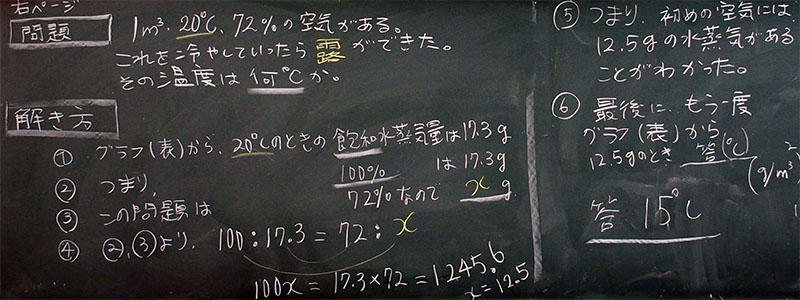 右ページ
問題
1m³、20℃、72%の空気がある。
これを冷やしていったら露ができた。
その温度は何℃か。
解き方
① グラフ(表)から、20℃のときの飽和水蒸気量は17.3g
② つまり、100%は17.3g
③ この問題は 72%なので x g
④ ②,③より、100:17.3=72:x
100x=17.3×72=1245.6
x=12.5
⑤ つまり、初めの空気には、
12.5gの水蒸気がある
ことがわかった。
⑥ 最後に、もう一度
グラフ(表)から
12.5gのとき 答(℃)
(g/m³)
答 15℃